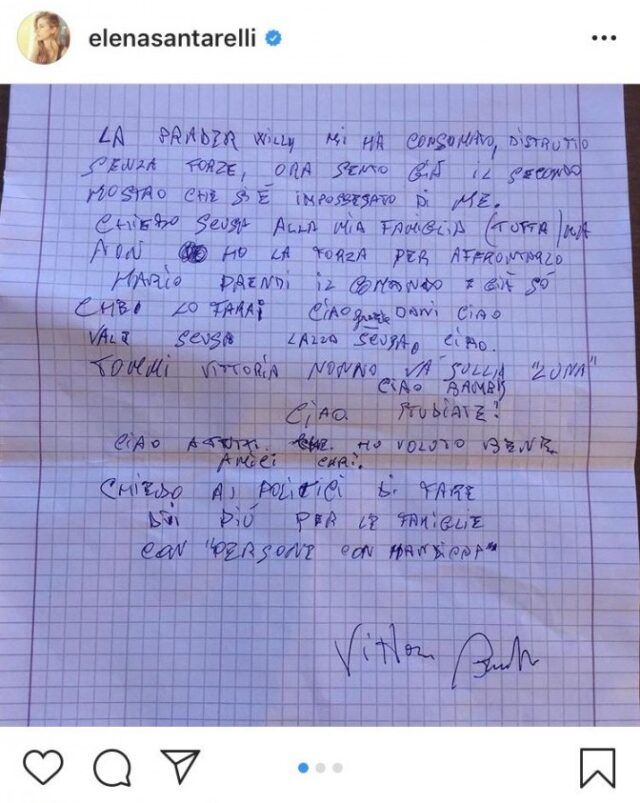 elenasantarelli
LA PRADER WILLY MI HA CONSUMATO, DISTRUTTO
SENZA FORZE, ORA SENTO GIÀ IL SECONDO
MOSTRO CHE SI È IMPOSSESSATO DI ME.
CHIEDO SCUSA ALLA MIA FAMIGLIA (TUTTA) MA
NON HO LA FORZA PER AFFRONTARLO
MARIO PRENDI IL COMANDO E GIÀ SÒ
CHE LO FARAI CIAO DANI CIAO
VALE SCUSA LALLA SCUSA, CIAO.
TOMMI VITTORIA NONNO VÀ SULLA "LUNA"
CIAO BAMBI
CIAO STUDIATE!
CIAO A TUTTI. HO VOLUTO BENE
AMICI CARI.
CHIEDO AI POLITICI DI FARE
DI PIÙ PER LE FAMIGLIE
CON "PERSONE CON HANDICAP"